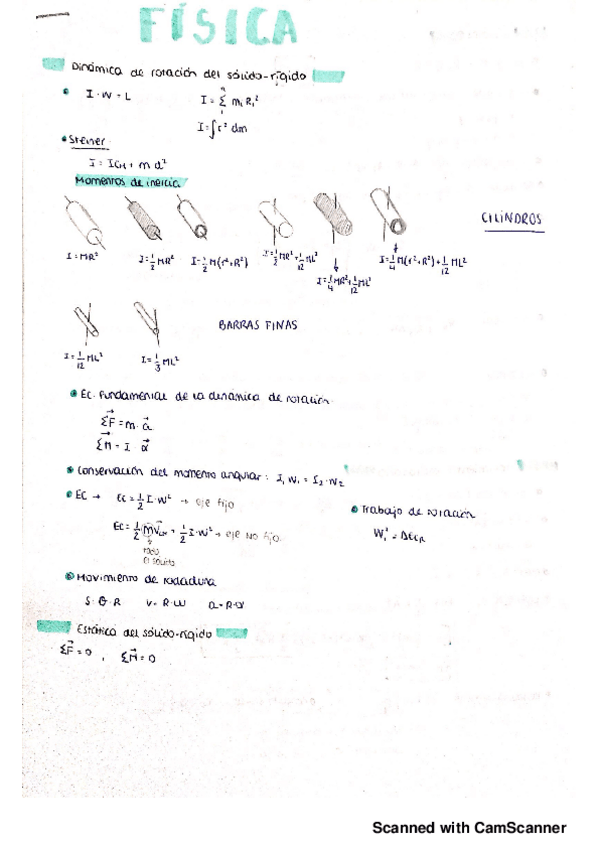 FÍSICA
Dinámica de rotación del sólido-rígido
I · W = L
I = Σ mᵢ Rᵢ²
I = ∫r² dm
Steiner:
I = ICM + m d²
Momentos de inercia
CILINDROS
I = MR²
I = 1/2 MR²
I = 1/2 M(r²+R²)
I = 1/2 MR² + 1/12 ML²
I = 1/4 MR² + 1/12 ML²
I = 1/4 M(r²+R²) + 1/12 ML²
BARRAS FINAS
I = 1/12 ML²
I = 1/3 ML²
Ec. Fundamental de la dinámica de rotación
ΣF = m · a
ΣM = I · α
Conservación del momento angular: I₁ W₁ = I₂ · W₂
EC → Ec = 1/2 I · W² → eje fijo
EC = 1/2 m V CM + 1/2 I · W² → eje no fijo
todo
el sólido
Trabajo de rotación
W = ΔECR
Movimiento de rodadura
S = θ · R v = R · W a = R · α
Estática del sólido-rígido
ΣF = 0 , ΣM = 0
Scanned with CamScanner